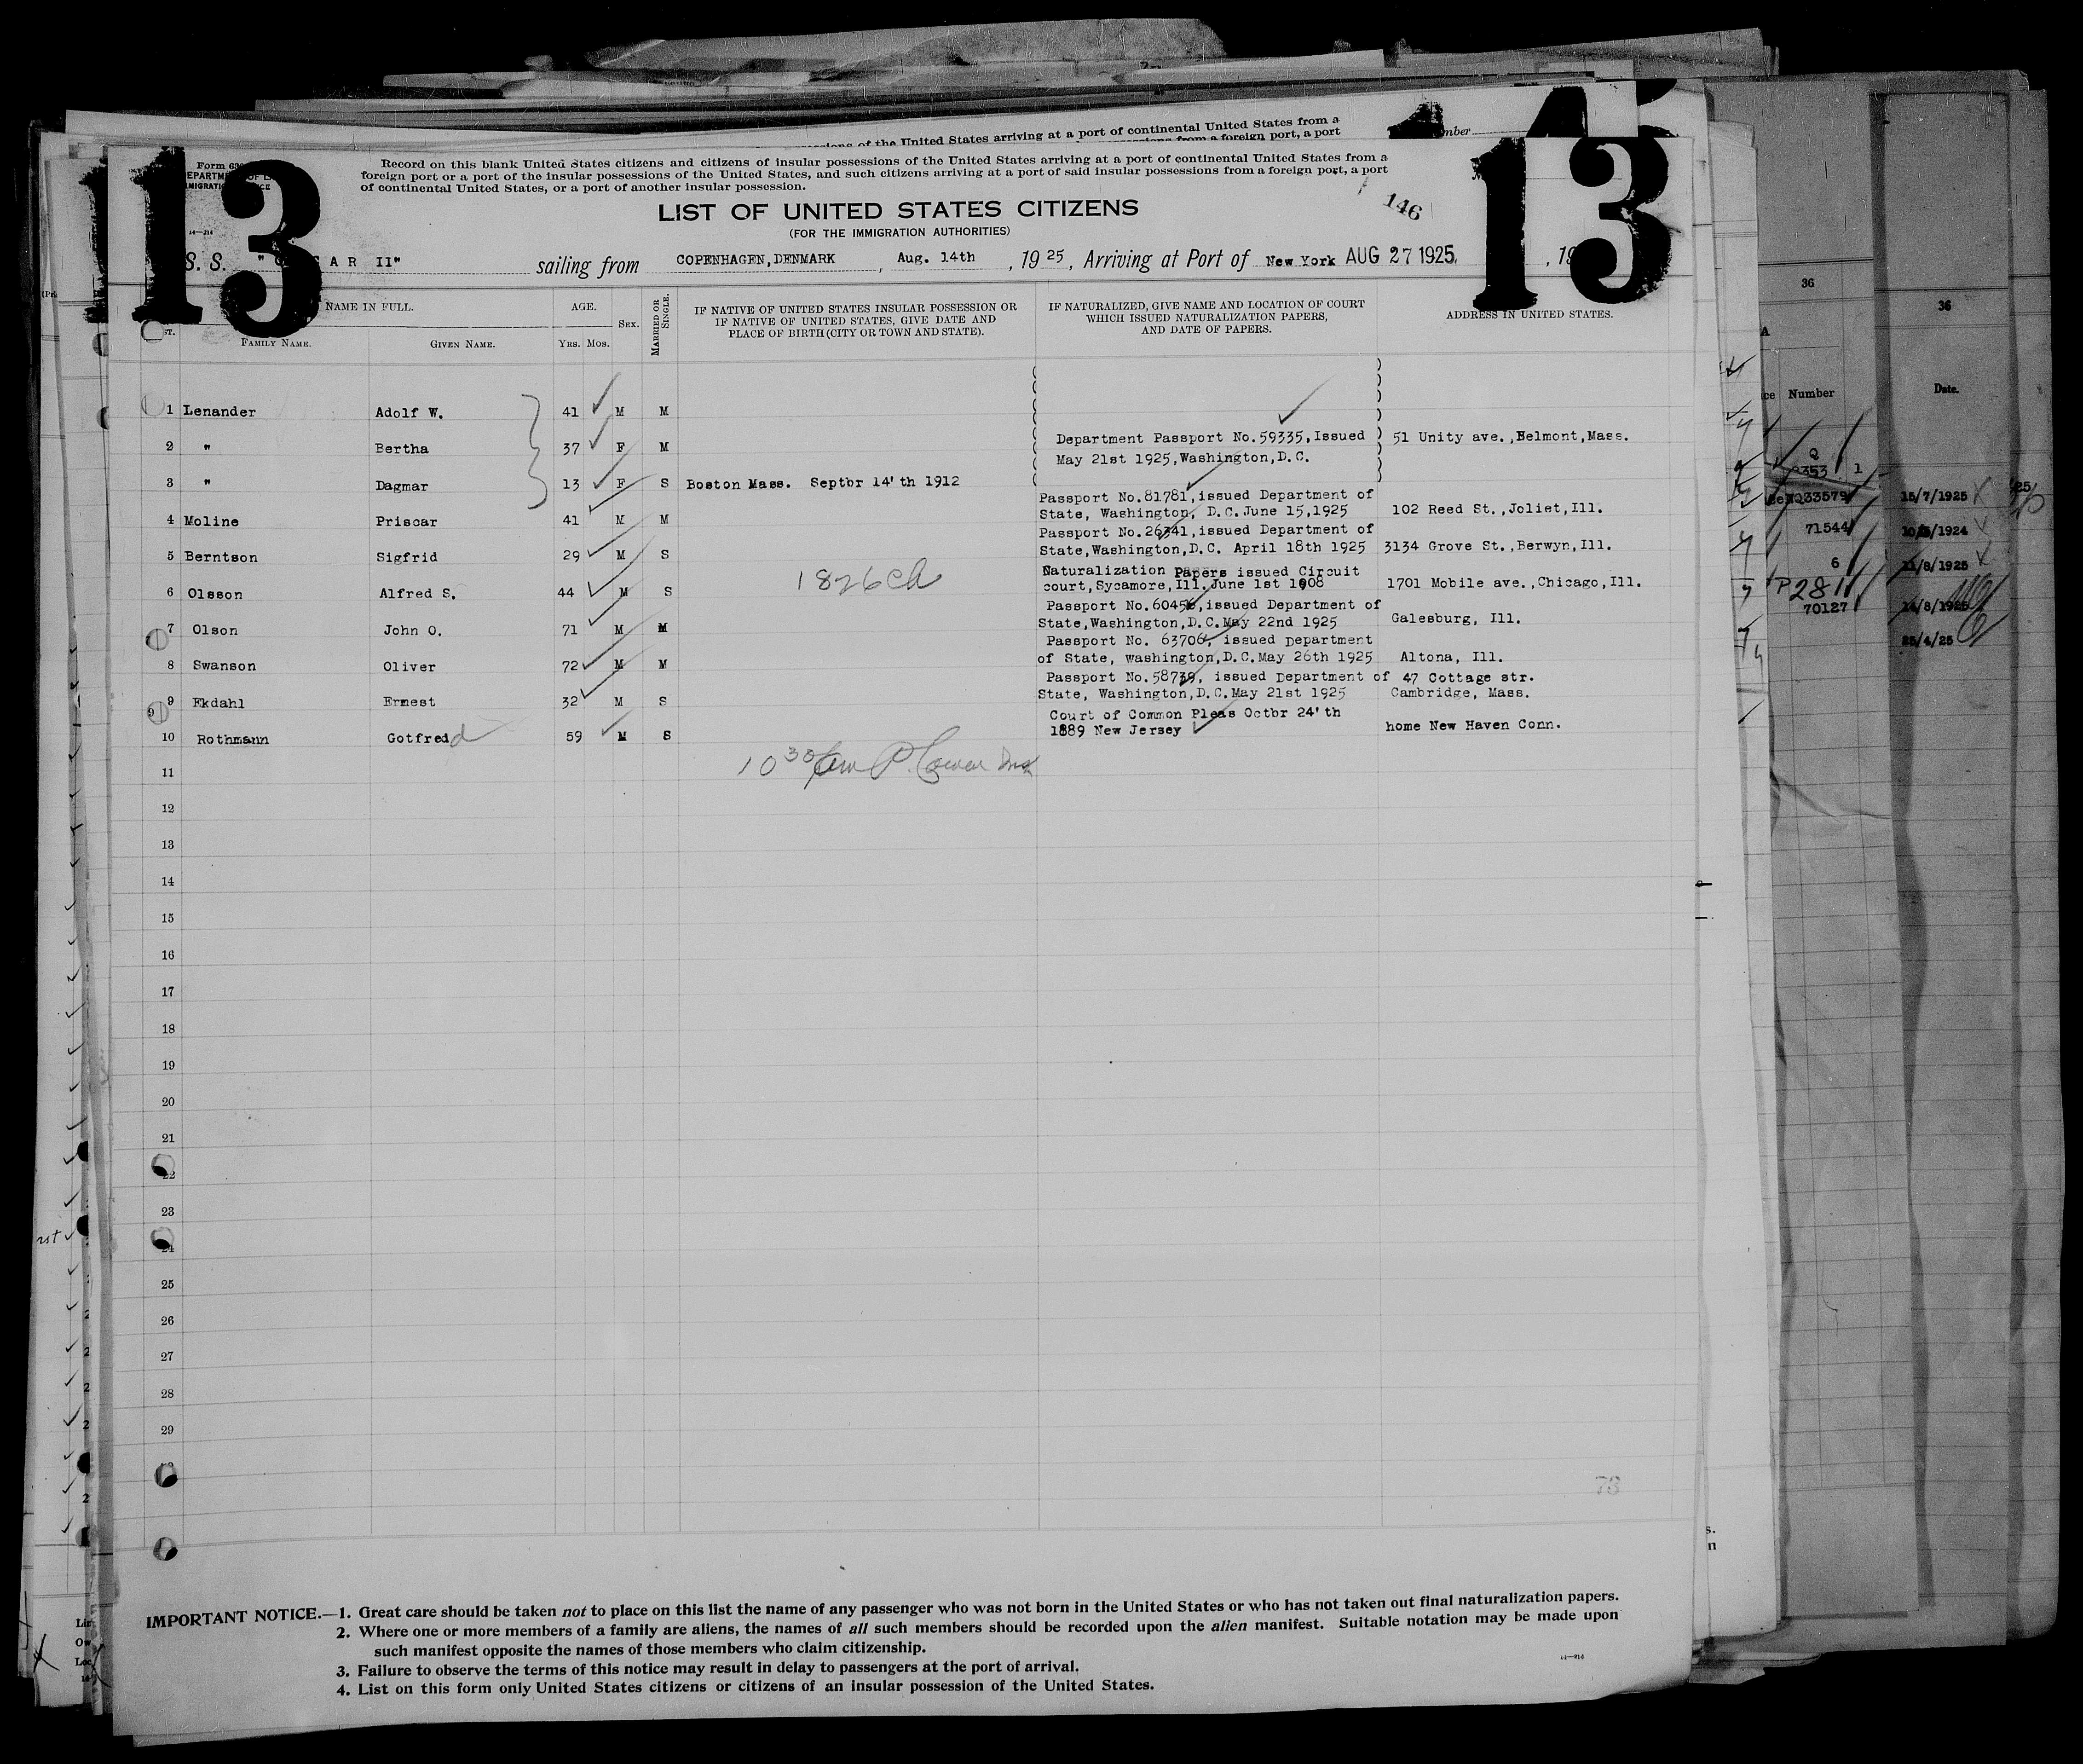 sions of the United States arriving at a port of continental United States from a
from a foreign port, a port
13
13
Record on this blank United States citizens and citizens of insular possessions of the United States arriving at a port of continental United States from a
foreign port or a port of the insular possessions of the United States, and such citizens arriving at a port of said insular possessions from a foreign port, a port
of continental United States, or a port of another insular possession.
LIST OF UNITED STATES CITIZENS
146
(FOR THE IMMIGRATION AUTHORITIES)
S. S. AR II" sailing from COPENHAGEN, DENMARK, Aug. 14th, 1925, Arriving at Port of New York AUG 27 1925, 19
NAME IN FULL. AGE. SEX. MARRIED OR SINGLE. IF NATIVE OF UNITED STATES INSULAR POSSESSION OR IF NATIVE OF UNITED STATES, GIVE DATE AND PLACE OF BIRTH (CITY OR TOWN AND STATE). IF NATURALIZED, GIVE NAME AND LOCATION OF COURT WHICH ISSUED NATURALIZATION PAPERS, AND DATE OF PAPERS. ADDRESS IN UNITED STATES.
FAMILY NAME. GIVEN NAME. Yrs. Mos.
1 Lenander Adolf W. 41 M M
2 " Bertha 37 F M Department Passport No. 59335, Issued May 21st 1925, Washington, D.C. 51 Unity ave., Belmont, Mass.
3 " Dagmar 13 F S Boston Mass. Septbr 14'th 1912
4 Moline Priscar 41 M M Passport No. 81781, issued Department of State, Washington, D.C. June 15, 1925 102 Reed St., Joliet, Ill.
5 Berntson Sigfrid 29 M S Passport No. 26341, issued Department of State, Washington, D.C. April 18th 1925 3134 Grove St., Berwyn, Ill.
6 Olsson Alfred S. 44 M S 1826 Naturalization Papers issued Circuit court, Sycamore, Ill. June 1st 1908 1701 Mobile ave., Chicago, Ill.
7 Olson John O. 71 M M Passport No. 60456, issued Department of State, Washington, D.C. May 22nd 1925 Galesburg, Ill.
8 Swanson Oliver 72 M M Passport No. 63706, issued Department of State, Washington, D.C. May 26th 1925 Altona, Ill.
9 Ekdahl Ernest 32 M S Passport No. 58739, issued Department of State, Washington, D.C. May 21st 1925 47 Cottage str. Cambridge, Mass.
10 Rothmann Gotfredd 59 M S Court of Common Pleas Octbr 24'th 1889 New Jersey home New Haven Conn.
11
12
13
14
15
16
17
18
19
20
21
22
23
24
25
26
27
28
29
73
IMPORTANT NOTICE.—1. Great care should be taken not to place on this list the name of any passenger who was not born in the United States or who has not taken out final naturalization papers.
2. Where one or more members of a family are aliens, the names of all such members should be recorded upon the alien manifest. Suitable notation may be made upon
such manifest opposite the names of those members who claim citizenship.
3. Failure to observe the terms of this notice may result in delay to passengers at the port of arrival.
4. List on this form only United States citizens or citizens of an insular possession of the United States.
36
36
Number
Date.
15/7/1925
71544
6
P 2811
70127
25/4/25